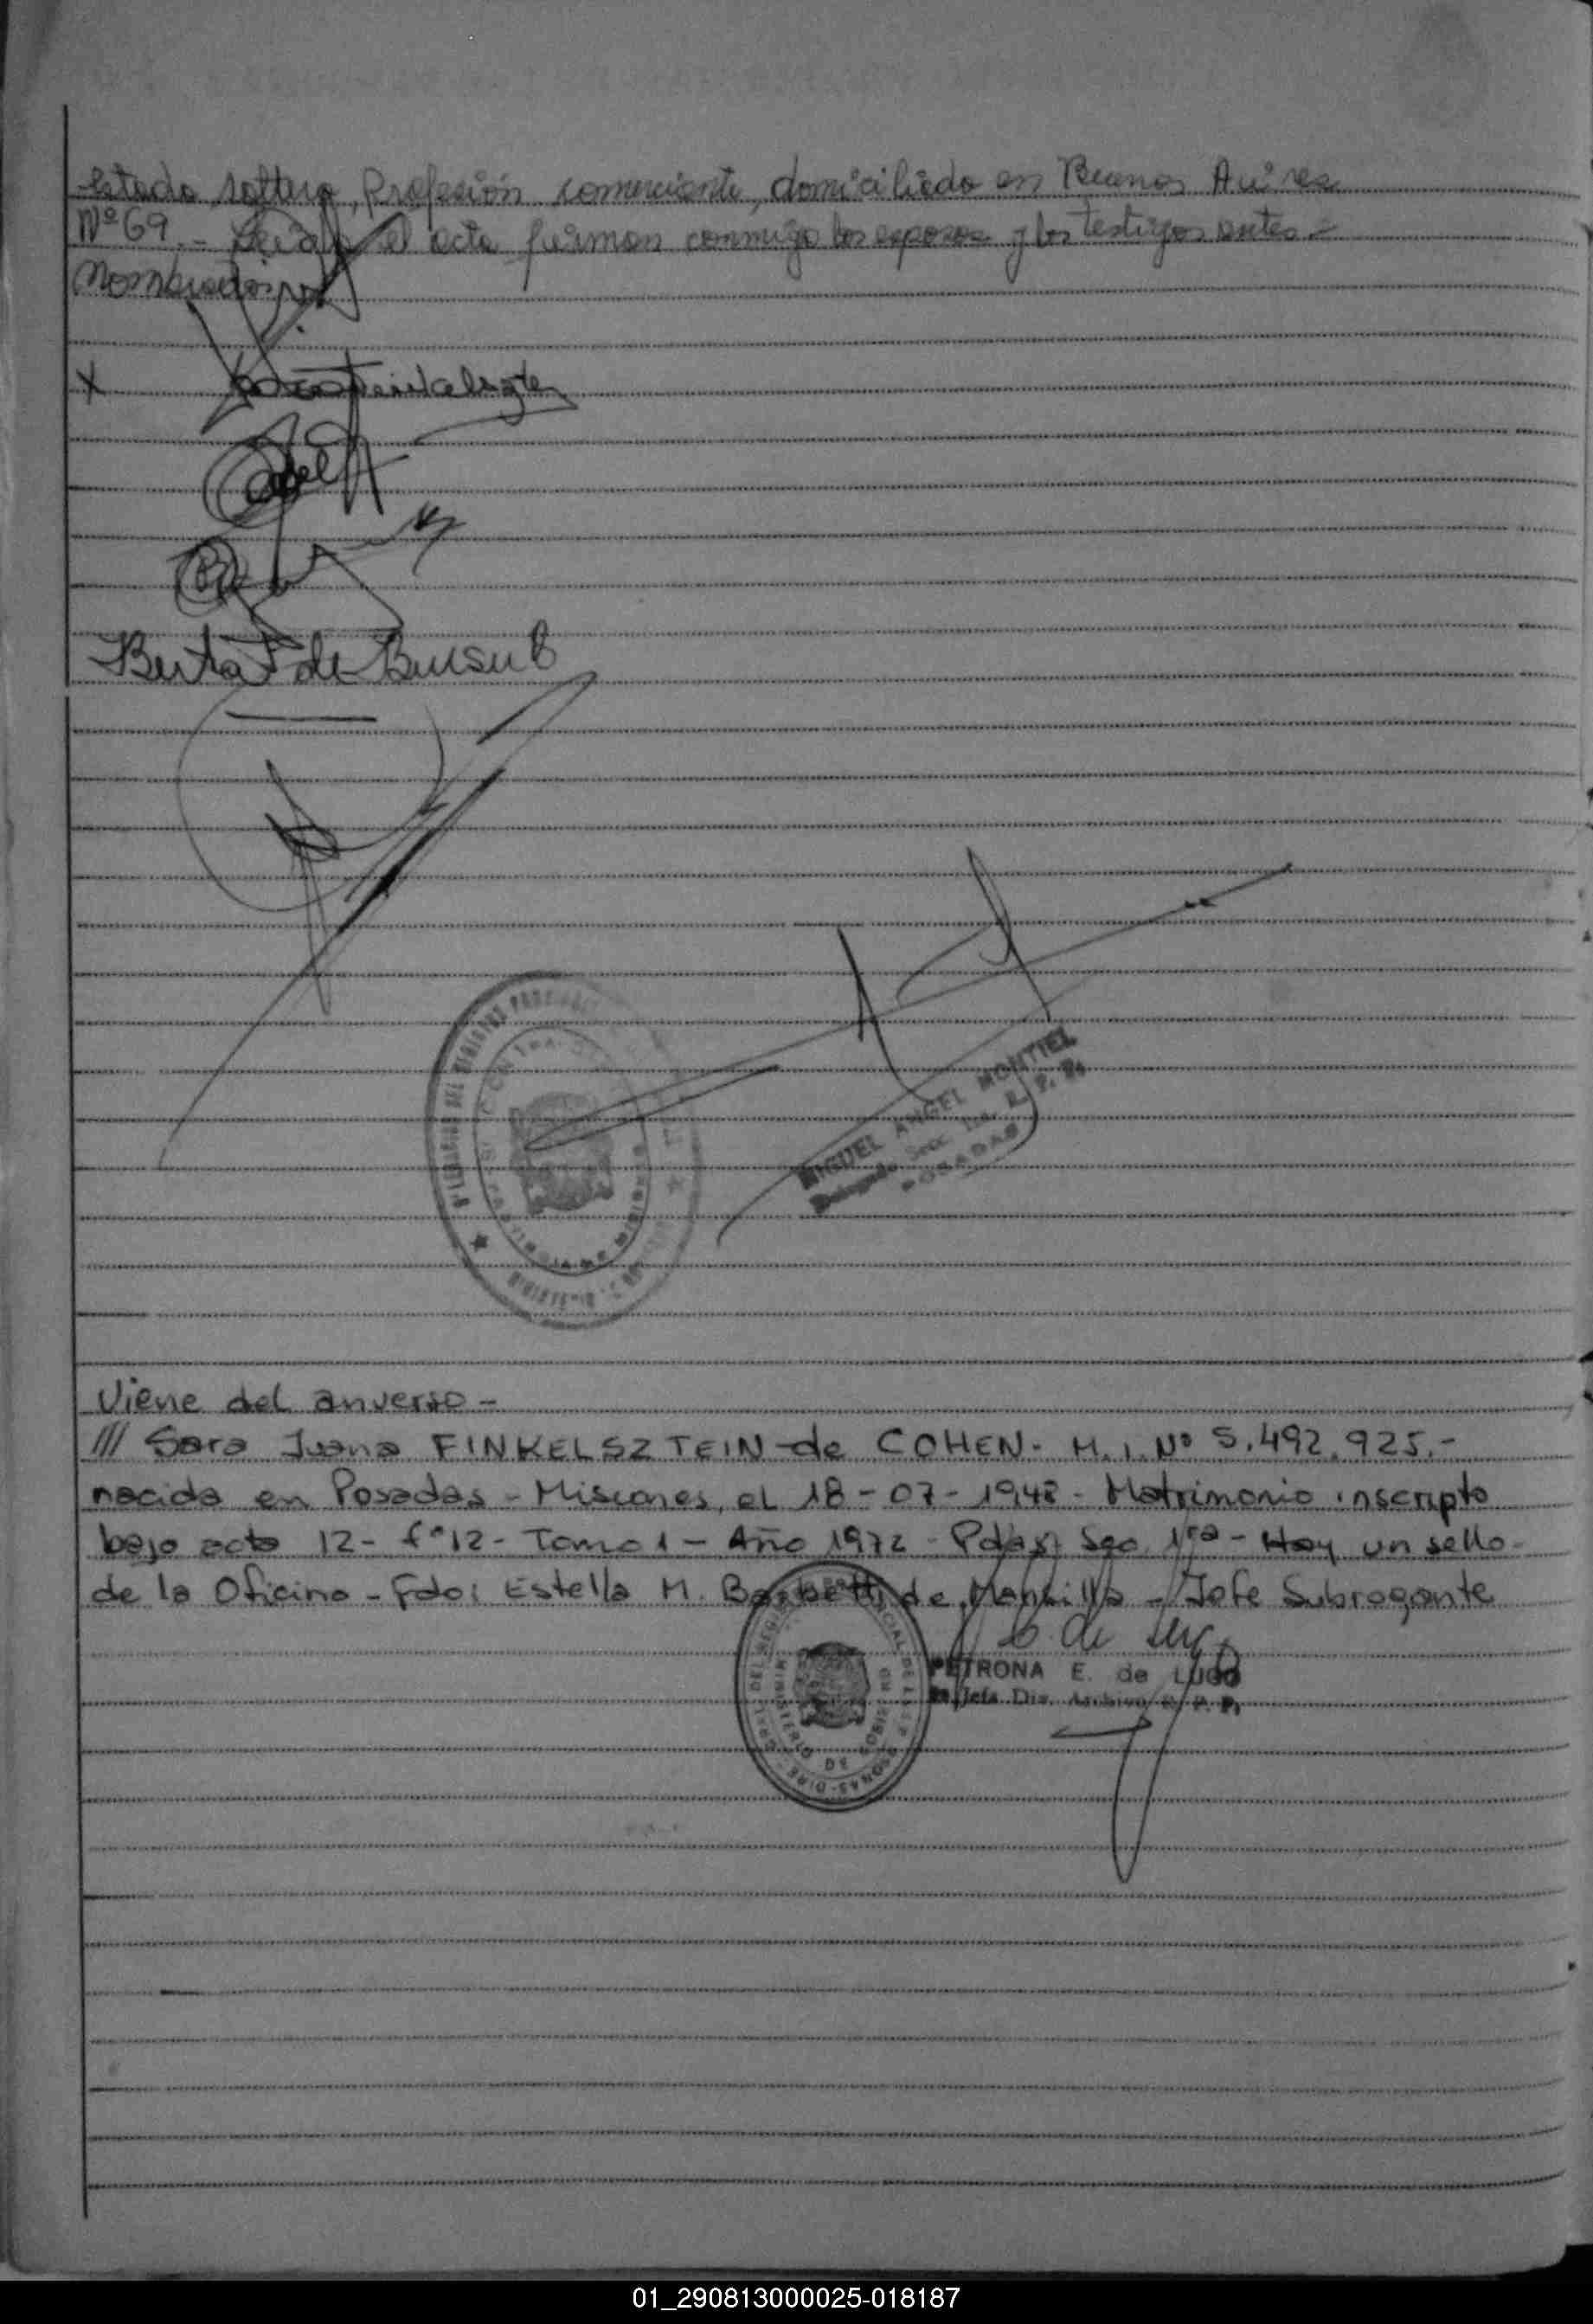 Estado soltero, Profesión comerciante, domiciliado en Buenos Aires
Nº 69.- Leída el acta firman conmigo los esposos y los testigos antes =
nombrados
X
Berta F de Bursuk
MIGUEL ANGEL MONTIEL
Delegado Secc. 1ra. R. P. P.
POSADAS
Viene del anverso -
/// Sara Juana FINKELSZTEIN de COHEN. M.I. Nº 5.492.925.-
nacida en Posadas - Misiones, el 18-07-1948 - Matrimonio inscripto
bajo acta 12- fº12- Tomo 1 - Año 1972 - Pdas. Sec. 1ra - Hay un sello
de la Oficina - Fdo: Estella M. Barbetti de Mansilla - Jefe Subrogante
E. de Lugo
PETRONA E. de LUGO
Jefa Div. Archivo R. P. P.
MINISTERIO DE GOBIERNO
01_290813000025-018187